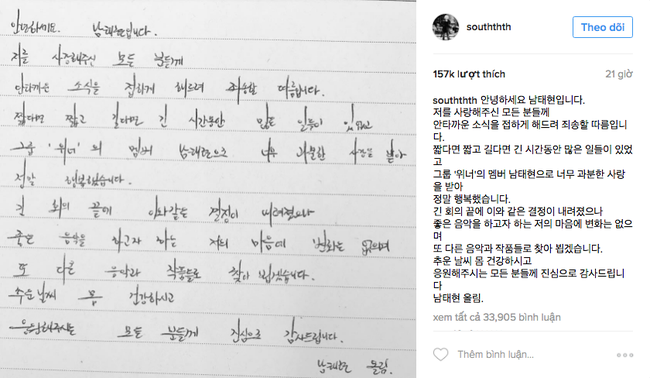 안녕하세요. 남태현입니다.
저를 사랑해주신 모든 분들께
안타까운 소식을 접하게 해드려 죄송할 따름입니다.
짧다면 짧고 길다면 긴 시간동안 많은 일들이 있었고
그룹 '위너'의 멤버 남태현으로 너무 과분한 사랑을 받아
정말 행복했습니다.
긴 회의 끝에 이와같은 결정이 내려졌으나
좋은 음악을 하고자 하는 저의 마음에 변화는 없으며
또 다른 음악과 작품들로 찾아 뵙겠습니다.
추운 날씨 몸 건강하시고
응원해주시는 모든 분들께 진심으로 감사드립니다.
남태현 올림.
souththth
Theo dõi
157k lượt thích
21 giờ
souththth 안녕하세요 남태현입니다.
저를 사랑해주신 모든 분들께
안타까운 소식을 접하게 해드려 죄송할 따름입니
다.
짧다면 짧고 길다면 긴 시간동안 많은 일들이 있었
고
그룹 '위너'의 멤버 남태현으로 너무 과분한 사랑
을 받아
정말 행복했습니다.
긴 회의 끝에 이와 같은 결정이 내려졌으나
좋은 음악을 하고자 하는 저의 마음에 변화는 없으
며
또 다른 음악과 작품들로 찾아 뵙겠습니다.
추운 날씨 몸 건강하시고
응원해주시는 모든 분들께 진심으로 감사드립니
다
남태현 올림.
xem tất cả 33,905 bình luận
Thêm bình luận...